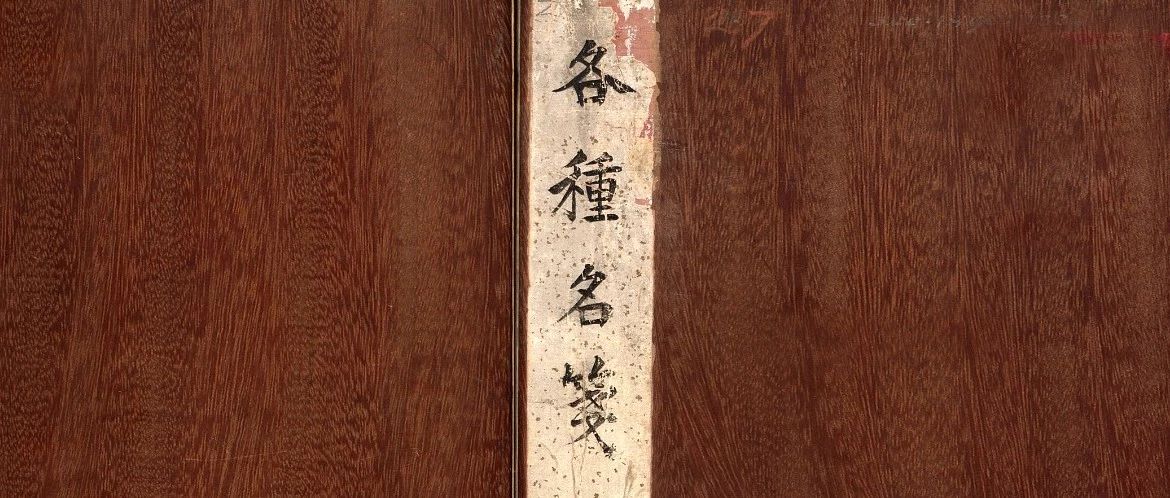 各種名箋